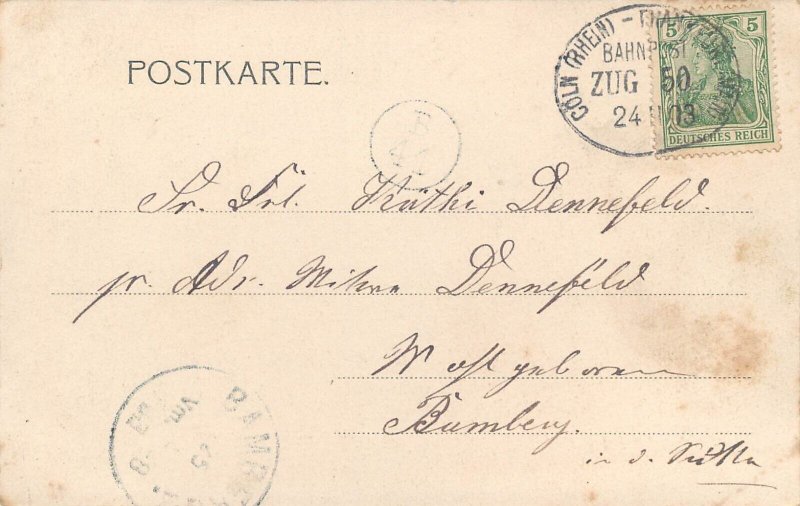 POSTKARTE.
CÖLN (RHEIN) - FRANKFURT
BAHNPOST
ZUG 50
24 03
5 5
DEUTSCHES REICH
Sr. Frl. Käthi Dennefeld.
pr. Adr. Witwe Dennefeld
Wohlgeboren
Bamberg.
in d.
BAMBERG
Vm